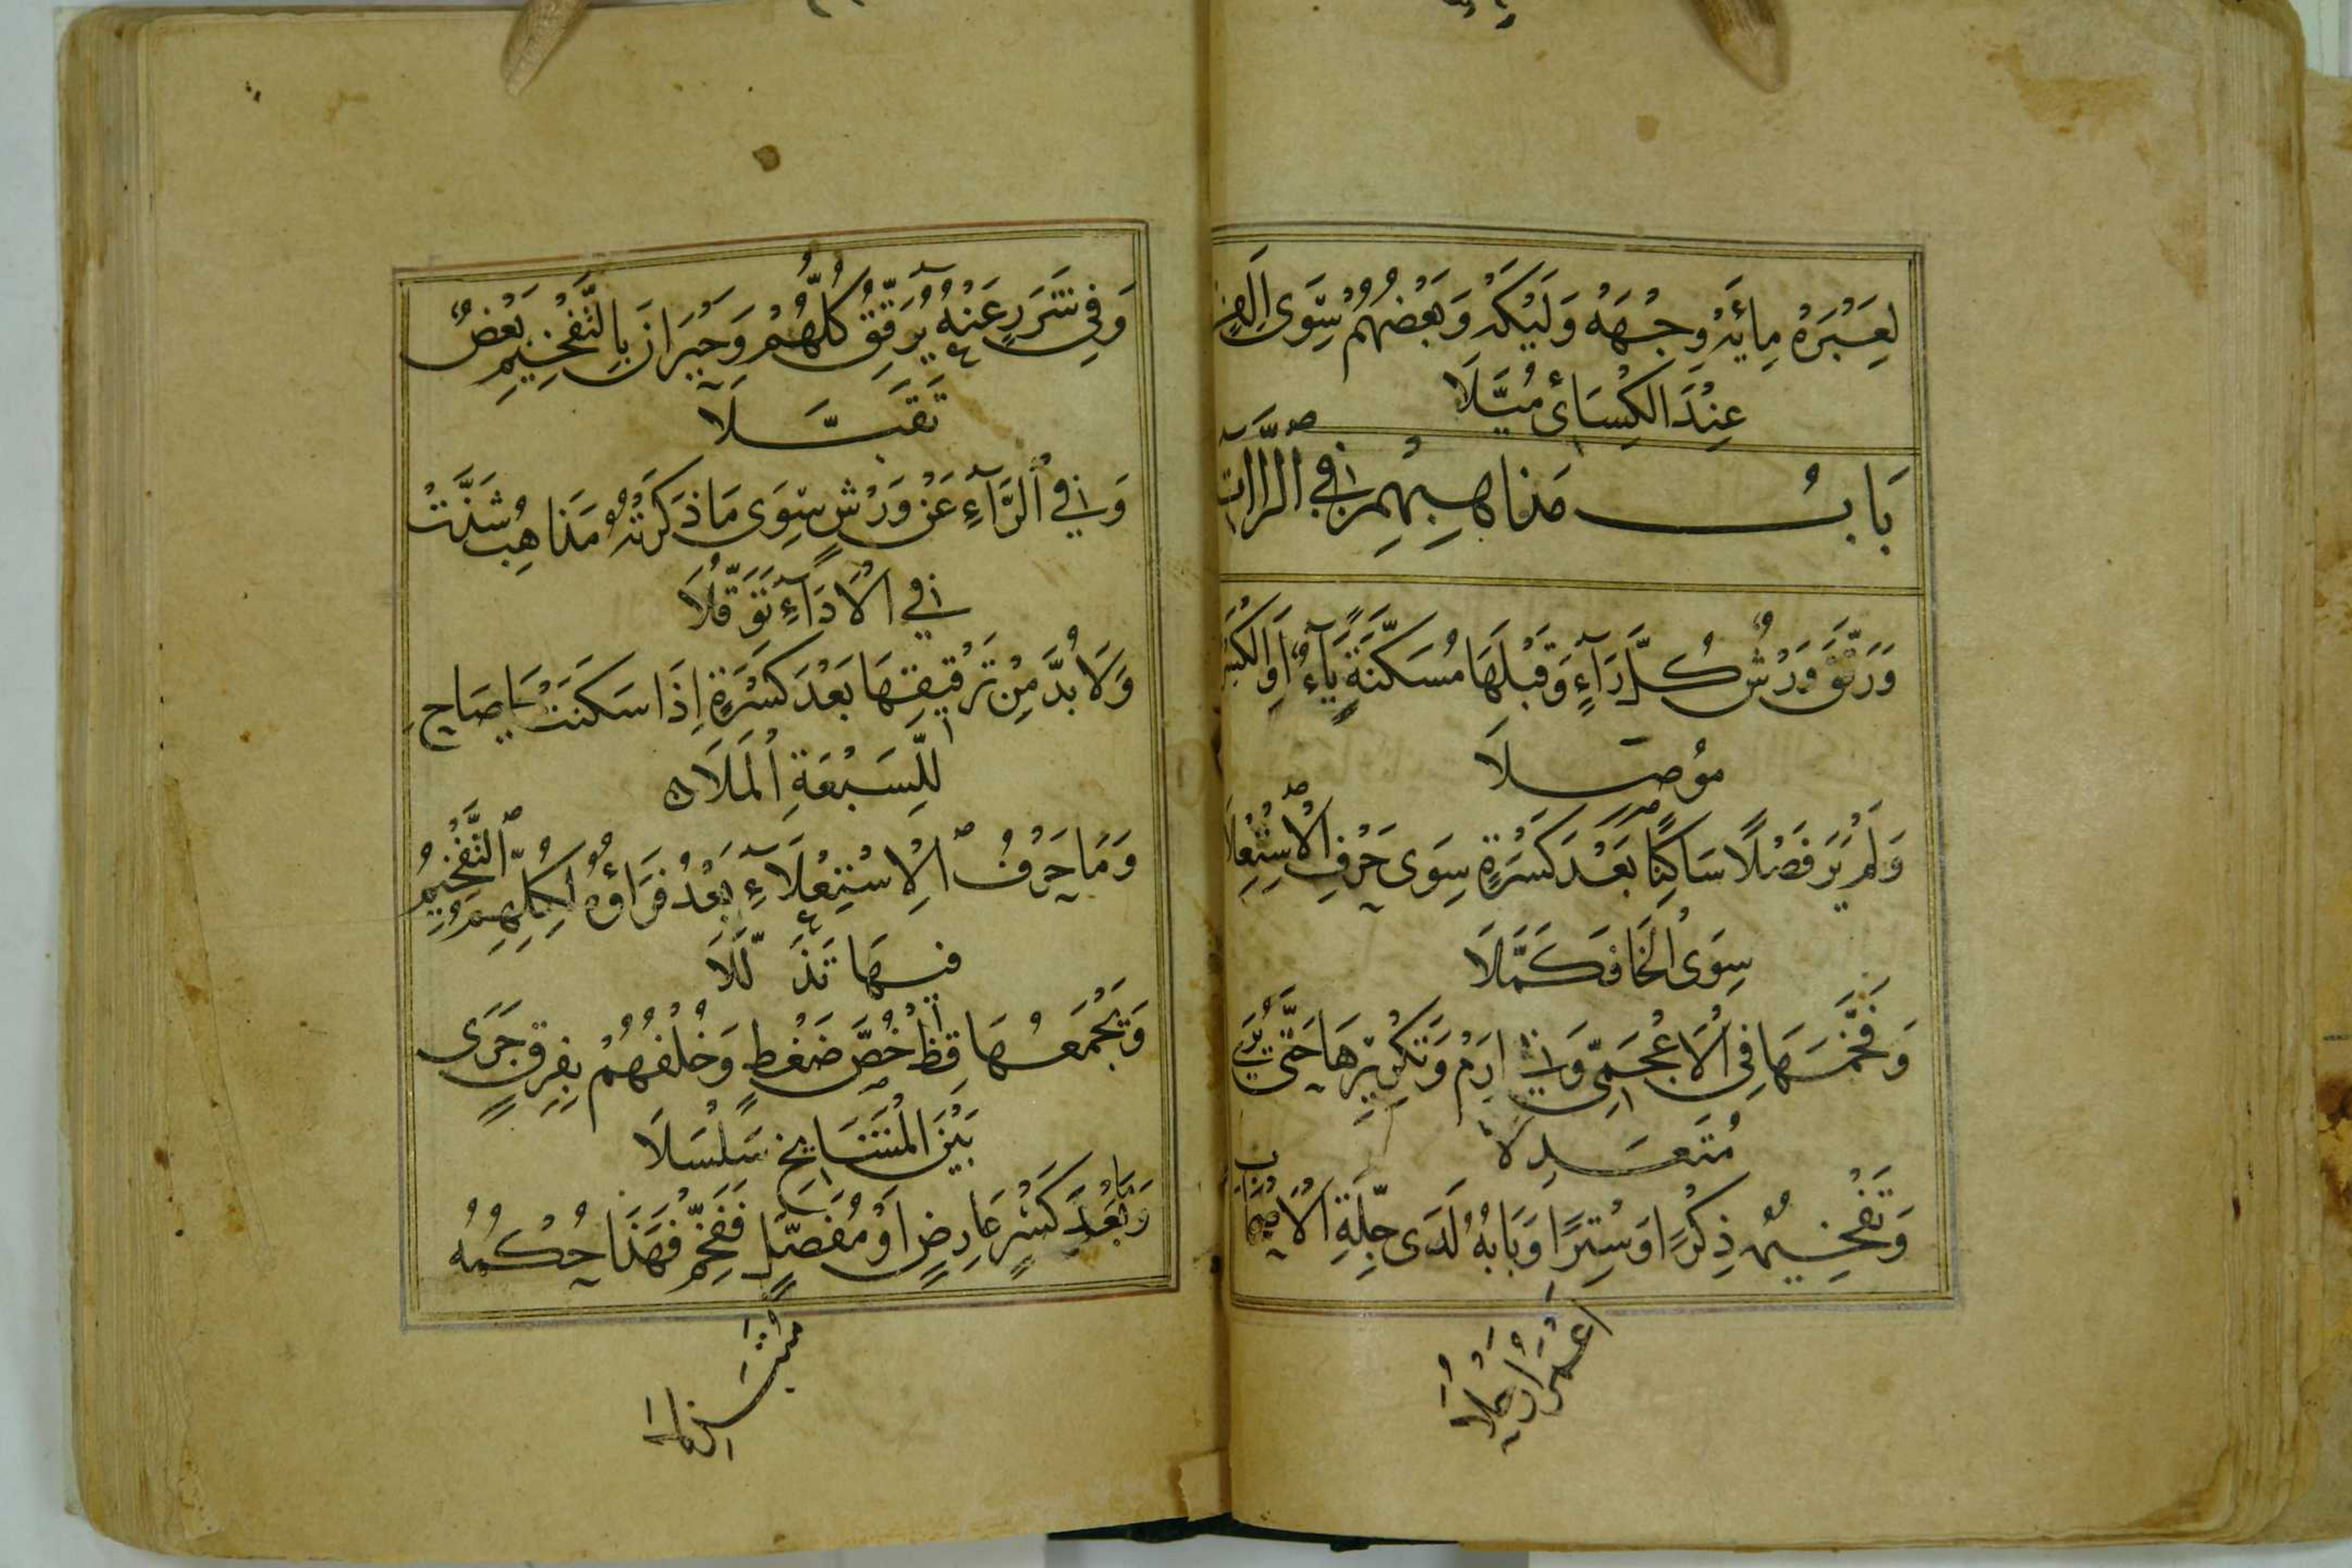 لِعِبْرَهْ مِائَهْ وِجْهَهْ وَلَيْكَهْ وَبَعْضُهُمْ سِوَى اَلِفٍ
عِنْدَ الكِسَائِى مُيِّلَا
بَابُ مَذَاهِبِهِمْ فِي الرَّاآتِ
وَرَقَّقَ وَرْشٌ كُلَّ رَآءٍ وَقَبْلَهَا مُسَكَّنَةً يَآءٌ اَوِ الكَسْرُ
مُوصَلَا
وَلَمْ يَرَ فَصْلًا سَاكِنًا بَعْدَ كَسْرَةٍ سِوَى حَرْفِ الاِسْتِعْلَا
سِوَى الْخَا فَكَمَّلَا
وَفَخَّمَهَا فِى الْاَعْجَمِىِّ وَفِي اِرَمْ وَتَكْرِيْرِهَا حَتَّى يُرَى
مُتَعَدِلَا
وَتَفْخِيمُهُ ذِكْرًا وَسِتْرًا وَبَابَهُ لَدَى جِلَّةِ الْاَصْحَابِ
اَعْمَرُ اَرْحُلَا
وَفِي شَرَرٍ عَنْهُ يُرَقِّقُ كُلُّهُمْ وَحَيْرَانَ بِالتَّفْخِيْمِ بَعْضٌ
تَقَبَّلَا
وَفِي الرَّآءِ عَنْ وَرْشٍ سِوَى مَا ذَكَرْتُهُ مَذَاهِبُ شَذَّتْ
فِي الْاَدَآءِ تَوَقُّلَا
وَلَا بُدَّ مِنْ تَرْقِيقِهَا بَعْدَ كَسْرَةٍ اِذَا سَكَنَتْ يَا صَاحِ
لِلسَّبْعَةِ الْمَلَا
وَمَا حَرْفُ الْاِسْتِعْلَآءِ بَعْدُ فَرَاؤُهُ لِكُلِّهِمُ التَّفْخِيْمُ
فِيهَا تَذَلَّلَا
وَيَجْمَعُهَا قِظْ خُصَّ ضَغْطٍ وَخُلْفُهُمْ بِفِرْقٍ جَرَى
بَيْنَ الْمَشَايِخِ سَلْسَلَا
وَمَا بَعْدَ كَسْرٍ عَارِضٍ اَوْ مُفَصَّلٍ فَفَخِّمْ فَهَذَا حُكْمُهُ